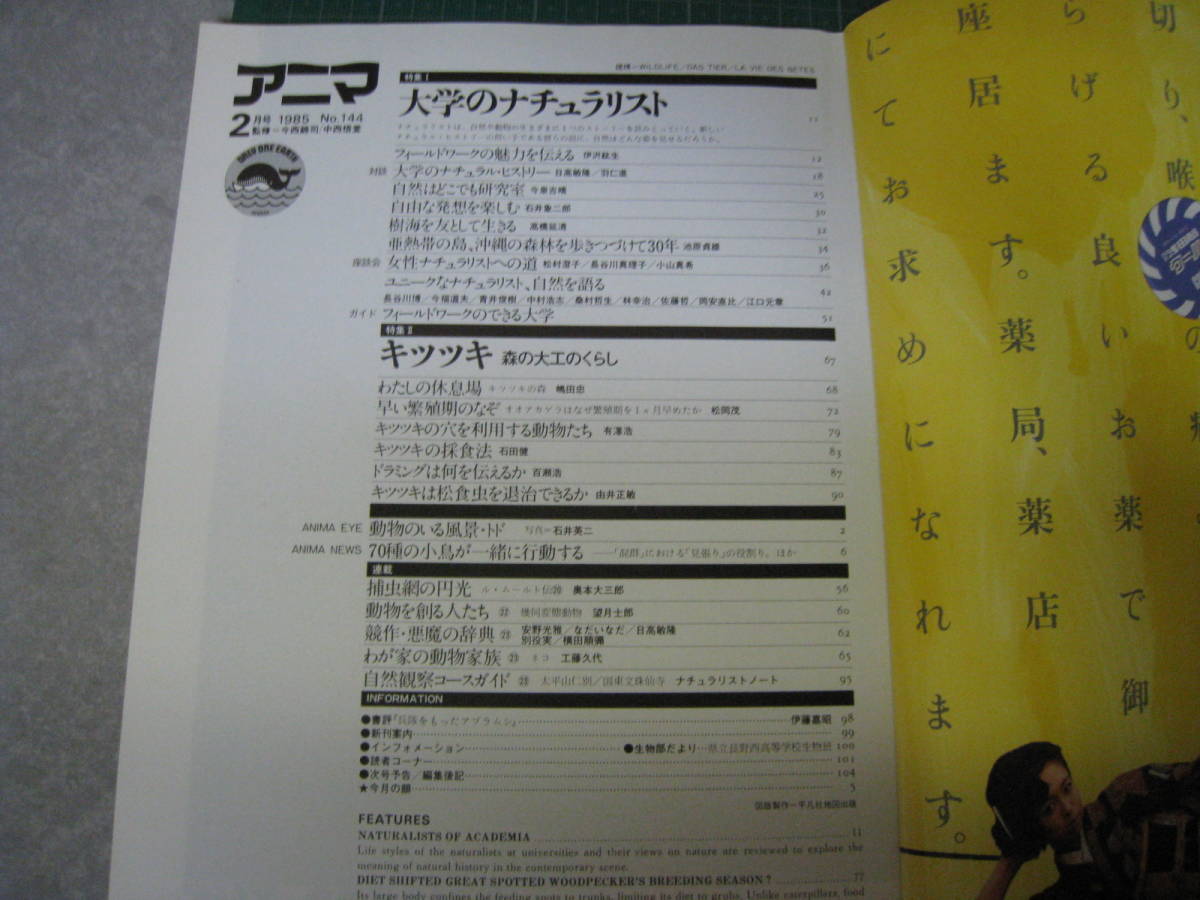 アニマ
2月号 1985 No.144
監修=今西錦司/中西悟堂
ONLY ONE EARTH
提携=WILDLIFE/DAS TIER/LA VIE DES BETES
特集 I
大学のナチュラリスト 11
フィールドワークの魅力を伝える 伊沢紘生 12
対談 大学のナチュラル・ヒストリー 日高敏隆/羽仁進 18
自然はどこでも研究室 今泉吉晴 25
自由な発想を楽しむ 石井象二郎 30
樹海を友として生きる 高橋延清 32
亜熱帯の島、沖縄の森林を歩きつづけて30年 池原貞雄 34
座談会 女性ナチュラリストへの道 松村澄子/長谷川真理子/小山真希 36
ユニークなナチュラリスト、自然を語る 42
長谷川博/今福道夫/青井俊樹/中村浩志/桑村哲生/林幸治/佐藤哲/岡安直比/江口元章
ガイド フィールドワークのできる大学 51
特集 II
キツツキ 森の大工のくらし 67
わたしの休息場 キツツキの森 嶋田忠 68
早い繁殖期のなぞ オオアカゲラはなぜ繁殖期を1ヵ月早めたか 松岡茂 72
キツツキの穴を利用する動物たち 有澤浩 79
キツツキの採食法 石田健 83
ドラミングは何を伝えるか 百瀬浩 87
キツツキは松食虫を退治できるか 由井正敏 90
ANIMA EYE 動物のいる風景・トド 写真=石井英二 2
ANIMA NEWS 70種の小鳥が一緒に行動する ——「混群」における「見張り」の役割り。ほか 6
連載
捕虫網の円光 ル・ムールト伝⑳ 奥本大三郎 56
動物を創る人たち ㉒ 幾何変態動物 望月士郎 60
競作・悪魔の辞典 ㉓ 安野光雅/なだいなだ/日高敏隆 62
別役実/横田順彌
わが家の動物家族 ㉓ ネコ 工藤久代 65
自然観察コースガイド ㉓ 太平山仁別/国東文珠仙寺 ナチュラリストノート 95
INFORMATION
●書評『兵隊をもったアブラムシ』 伊藤嘉昭 98
●新刊案内 99
●インフォメーション ●生物部だより…県立長野西高等学校生物班 100
●読者コーナー 101
●次号予告/編集後記 104
★今月の顔 5
図版製作=平凡社地図出版
FEATURES
NATURALISTS OF ACADEMIA 11
Life styles of the naturalists at universities and their views on nature are reviewed to explore the
meaning of natural history in the contemporary scene.
DIET SHIFTED GREAT SPOTTED WOODPECKER'S BREEDING SEASON? 77
Its large body confines the feeding spots to trunks, limiting its diet to grubs. Unlike caterpillars, food
切り、喉の
らげる良いお薬で御
座居ます。薬局、薬店
にてお求めになれます。